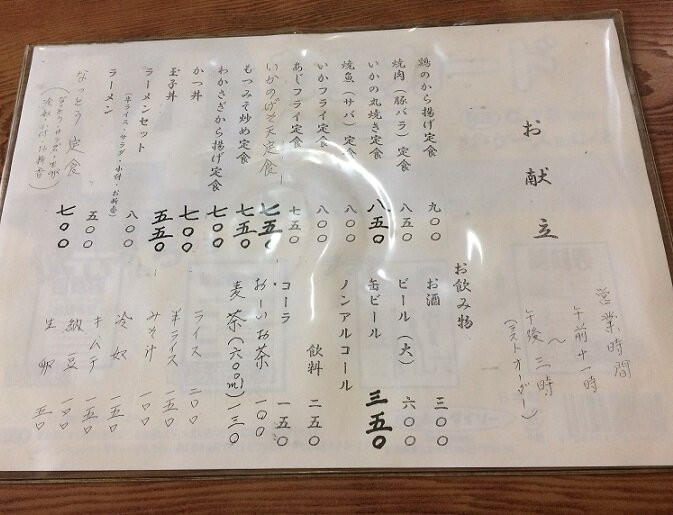 お献立
営業時間
午前十一時
〜
午後二時
(ラストオーダー)
鶏のから揚げ定食 九〇〇
焼肉(豚バラ)定食 八五〇
いかの丸焼き定食 八五〇
焼魚(サバ)定食 八〇〇
いかフライ定食 八〇〇
あじフライ定食 七五〇
いかのげそ天定食 七五〇
もつみそ炒め定食 七五〇
わかさぎから揚げ定食 七〇〇
かつ丼 七〇〇
玉子丼 五五〇
ラーメンセット 八〇〇
(半ライス・サラダ・小付・お新香)
ラーメン 五〇〇
なっとう定食 七〇〇
お飲み物
お酒 三〇〇
ビール(大) 六〇〇
缶ビール 三五〇
ノンアルコール
飲料 二五〇
コーラ 一五〇
おーいお茶 一〇〇
麦茶(六〇〇ml) 一三〇
ライス 二〇〇
半ライス 一五〇
みそ汁 一〇〇
冷奴 一五〇
キムチ 一五〇
納豆 一〇〇
生卵 五〇